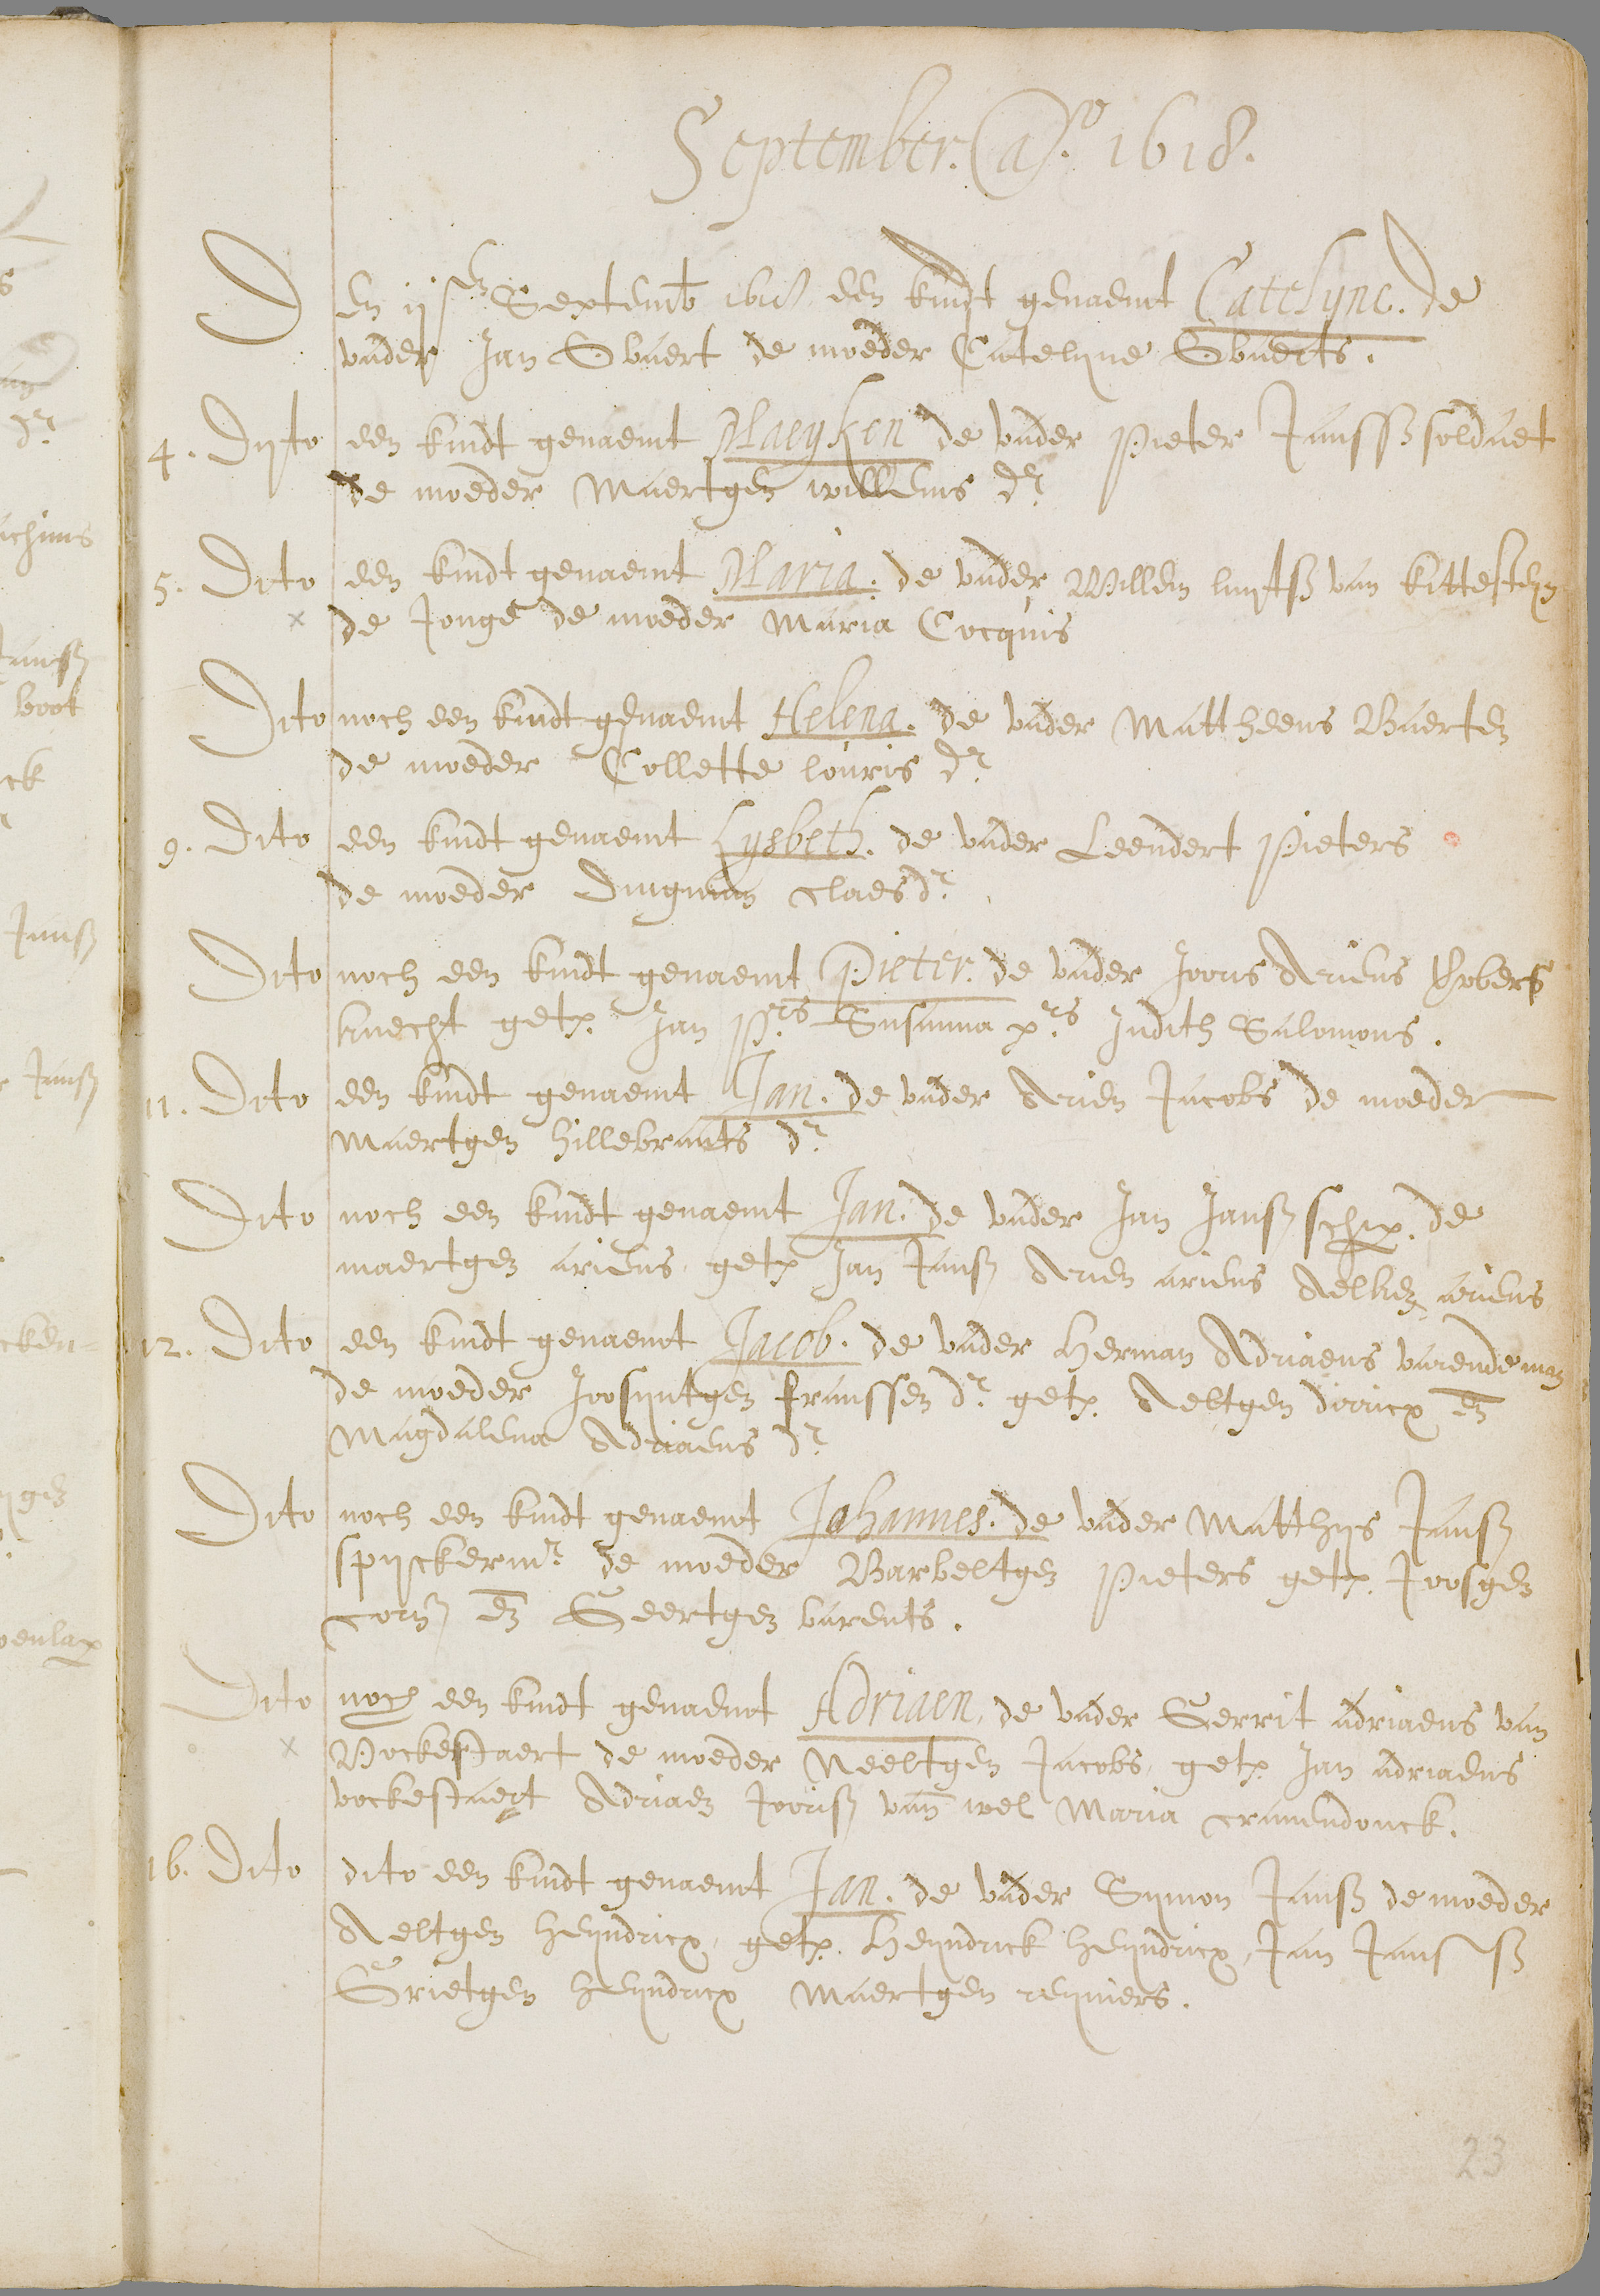 September. Aº. 1618.
Den ijsen Septemb 1618 een kindt genaemt Catelync. de
vader Jan Swaert de moeder Catelyne Swaerts.
4. Dito een kindt genaemt Maeyken de vader Pieter Janssz soldaet
de moeder Maertgen willems dr
5. Dito een kindt genaemt Maria. de vader Willem van kittesteyn
de Jonge de moeder Maria Cocquis
Dito noch een kindt genaemt Helena. de vader Mattheeus Baerten
de moeder Collette louris dr
9. Dito een kindt genaemt Lysbeth. de vader Leendert Pieters
de moeder Dingman claes dr
Dito noch een kindt genaemt Pieter. de vader Joris Ariens
knecht getx. Jan Prs Susanna prs Judith Salomons.
11. Dito een kindt genaemt Jan. de vader Arien Jacobs de moeder
Maertgen hillebrants dr
Dito noch een kindt genaemt Jan. de vader Jan Jansz schipr. de
maertgen ariens getx Jan Jansz Arien ariens ariens
12. Dito een kindt genaemt Jacob. de vader Herman Adriaens varendeman
de moeder Joosyntgen franssen dr getx. Aeltgen dirricx en
Magdalena Adriaens dr
Dito noch een kindt genaemt Johannes. de vader Matthys Jansz
spyckermr de moeder Barbeltgen Pieters getx. Joosgen
cornz en Geertgen barents.
Dito noch een kindt genaemt Adriaen, de vader Gerrit adriaens van
Vockestaert de moeder Neeltgen Jacobs, getx. Jan adriaens
vockestaert Adriaen Jorisz van wel Maria cranendonck.
16. Dito dito een kindt genaemt Jan. de vader Symon Jansz de moeder
Aeltgen heyndricx, getx. Heyndrick heyndricx, Jan Janssz
Grietgen heyndricx Maertgen reyniers.
23